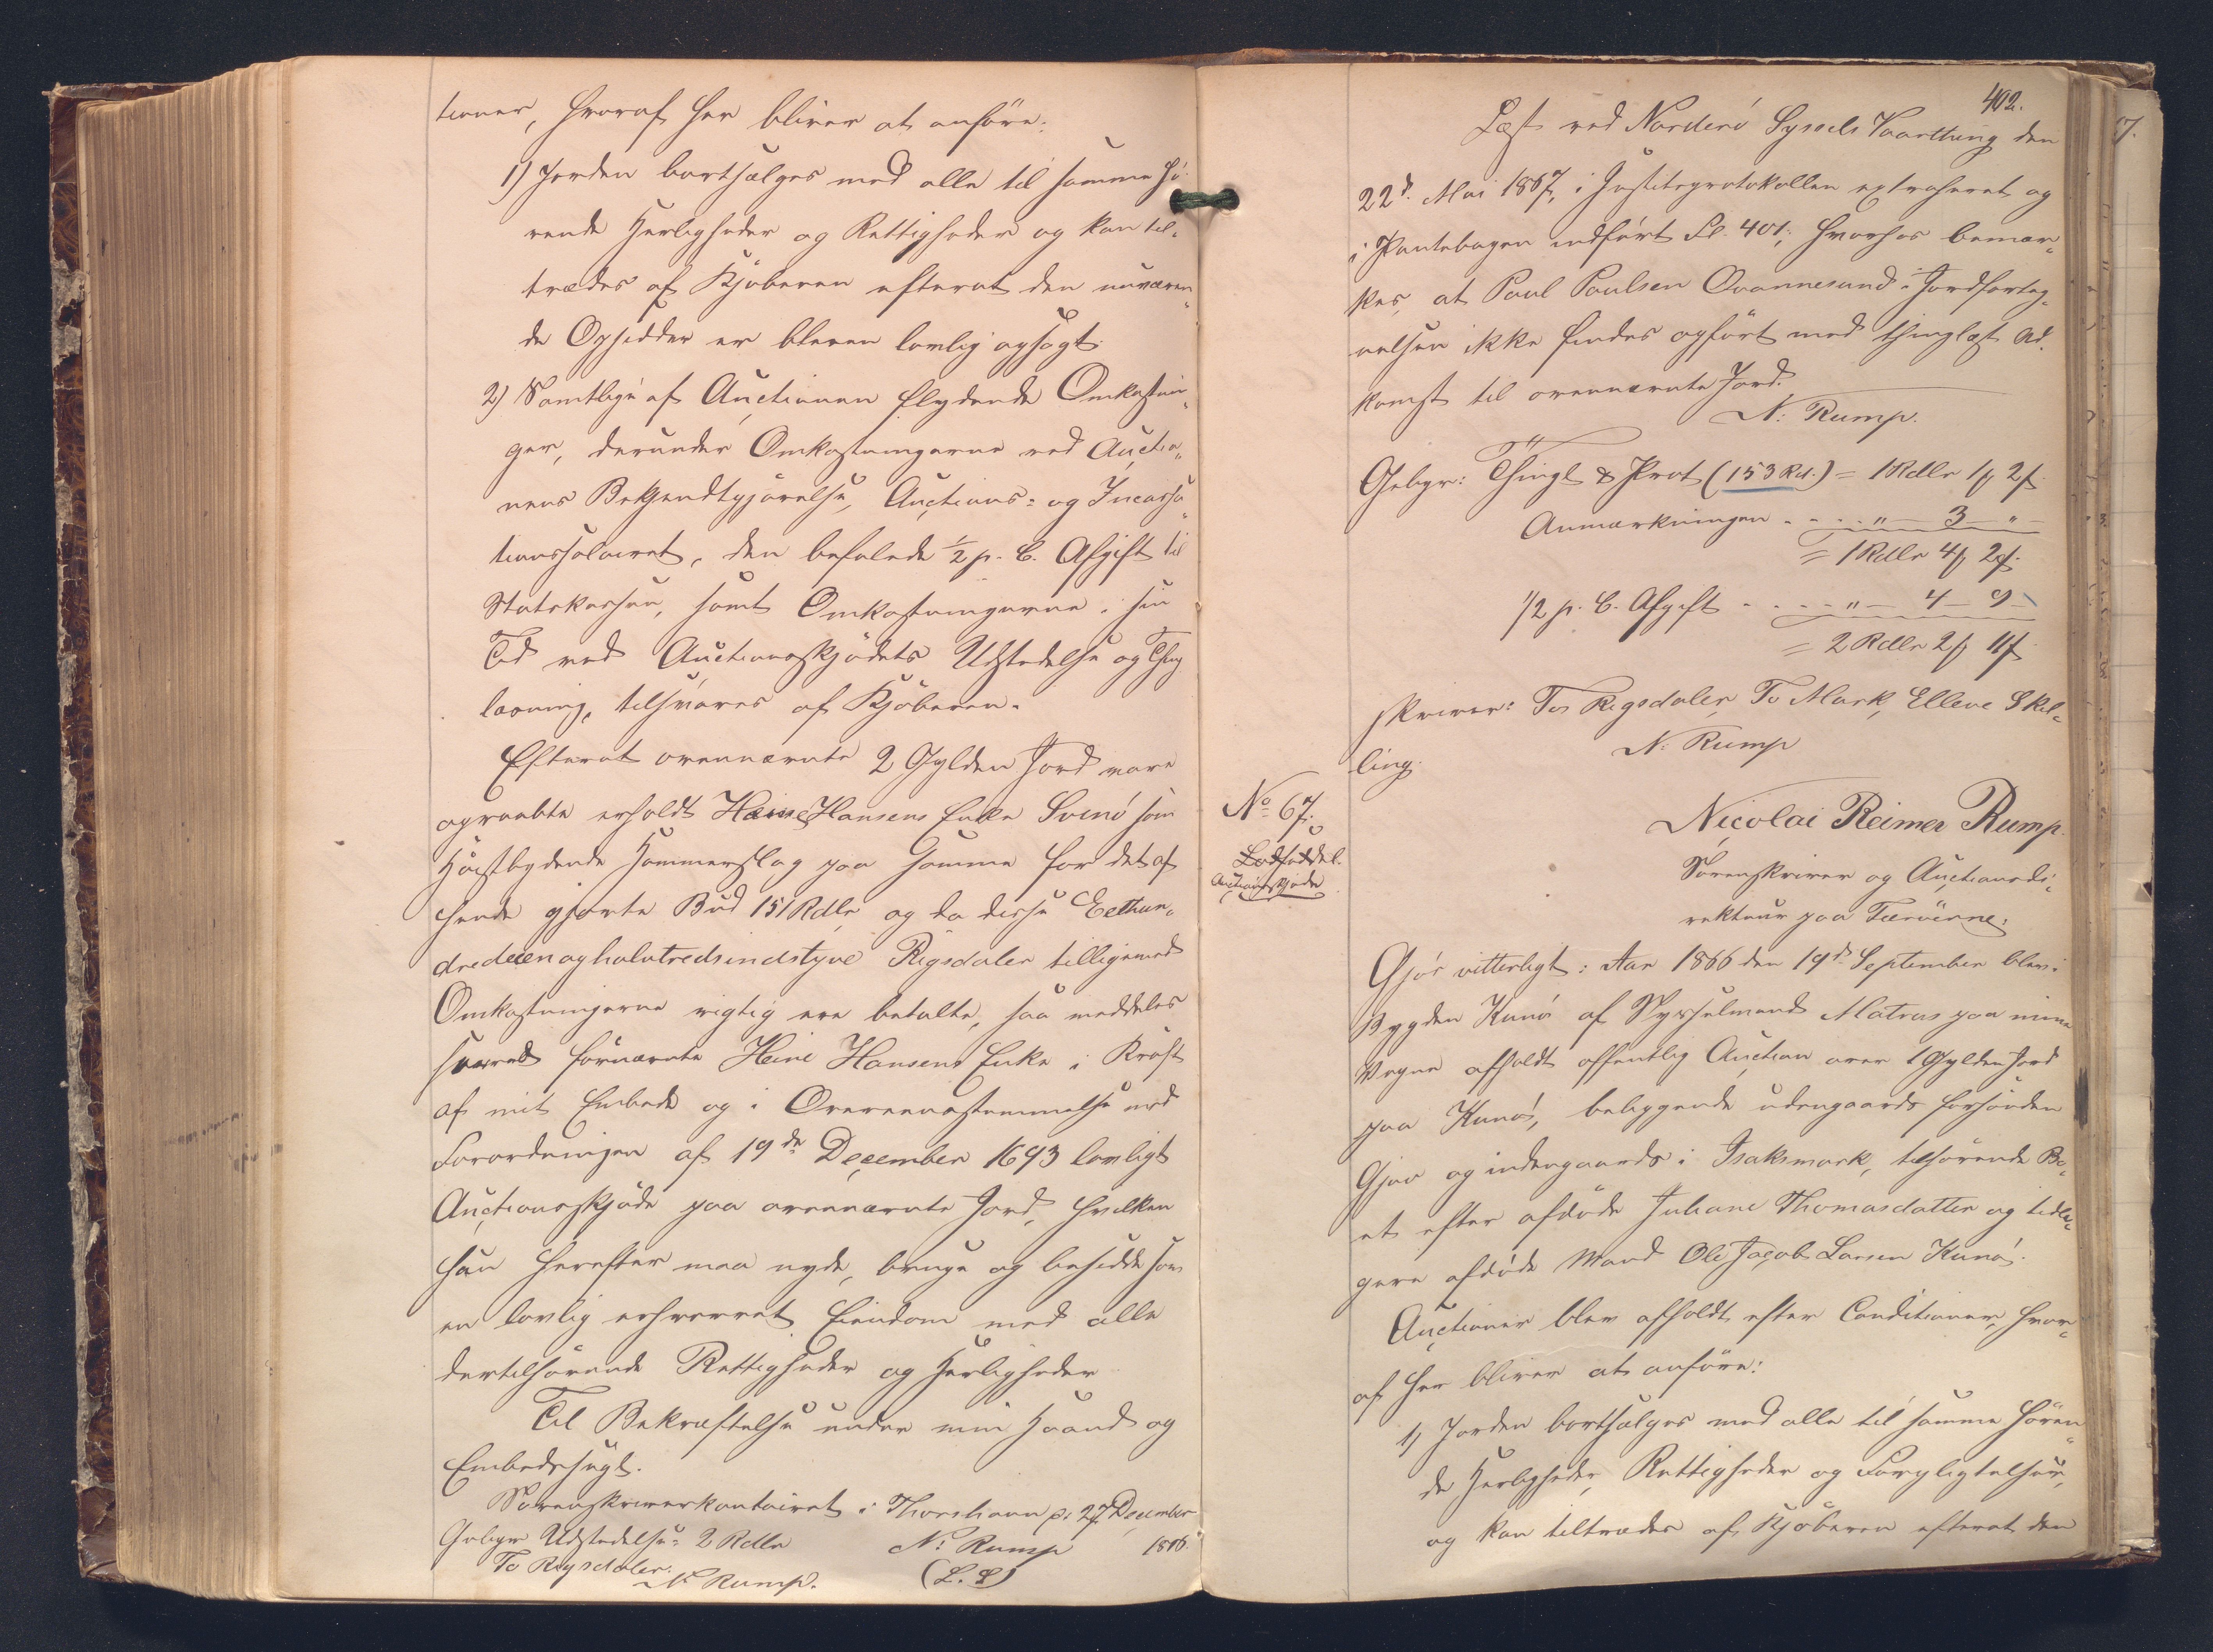 tioner, hvoraf her bliver at anföre:
1) Jorden bortsælges med alle til samme hö-
rende Herligheder og Rettigheder og kan til-
trædes af Kjöberen efterat den nuværen-
de Opsidder er bleven lovlig opsagt.
2) Samtlige af Auctionen flydende Omkostnin-
ger, derunder Omkostningerne ved Auctio-
nens Bekjendtgjörelse, Auctions- og Incassa-
tionssalairet, den befalede ½ p. C. Afgift til
Statskassen, samt Omkostningerne i sin
Tid ved Auctionsskjödets Udstedelse og Thing
læsning, tilsvares af Kjöberen.
Efterat ovennævnte 2 Gylden Jord vare
opraabte erholdt Heine Hansens Enke Svinö som
Höistbydende Hammerslag paa Samme for det af
hende gjorte Bud 151 Rdlr og da disse Eethun-
dredeenoghalvtredsindstyve Rigsdaler tilligemed
Omkostningerne rigtig ere betalte, saa meddeles
herved fornævnte Heine Hansens Enke i Kraft
af mit Embede og i Overeensstemmelse med
Forordningen af 19de December 1693 lovligt
Auctionsskjöde paa ovennævnte Jord, hvilken
hun herefter maa nyde, bruge og besidde som
en lovlig erhvervet Eiendom med alle
dertilhörende Rettigheder og Herligheder.
Til Bekræftelse under min Haand og
Embedssegl.
Sorenskriverkontoiret i Thorshavn p: 27 December
Gebyr Udstedelse: 2 Rdlr N. Rump 1866.
To Rigsdaler. (L. S)
N. Rump.
402.
Læst ved Norderö Syssels Vaarthing den
22d. Mai 1867, i Justitsprotokollen extraheret og
i Pantebogen indfört Fl. 401, hvorhos bemær-
kes, at Poul Poulsen Qvannesund i Jordforteg-
nelsen ikke findes opfört med thinglæst Ad-
komst til ovennævnte Jord.
N. Rump.
Gebyr: Thingl & Prot (153 Rd.) = 1 Rdlr 1 ꝑ 2 ß
Anmærkningen - - - - " - 3 - "
= 1 Rdlr 4 ꝑ 2 ß.
½ p. C. Afgift - - - - " - 4 - 9 -
= 2 Rdlr 2 ꝑ 11 ß
skriver: To Rigsdaler, To Mark, Elleve Skil-
ling.
N. Rump
No 67.
Lodseddel.
Auctionsskjöde
Nicolai Reimer Rump.
Sorenskriver og Auctionsdi-
rekteur paa Færöerne,
Gjör vitterligt: Aar 1866 den 19d. September blev i
Bygden Kunö af Sysselmand Matras paa mine
Vegne afholdt offentlig Auction over 1 Gylden Jord
paa Kunö, beliggende udengaards forsönden
Gjov og indengaards i Isaksmark, tilhörende Bo-
et efter afdöde Juliane Thomasdatter og tidli-
gere afdöde Mand Ole Jacob Larsen Kunö.
Auctionen blev afholdt efter Conditioner, hvor-
af her bliver at anföre:
1) Jorden bortsælges med alle til samme hören-
de Herligheder, Rettigheder og Forpligtelser,
og kan tiltrædes af Kjöberen efterat den